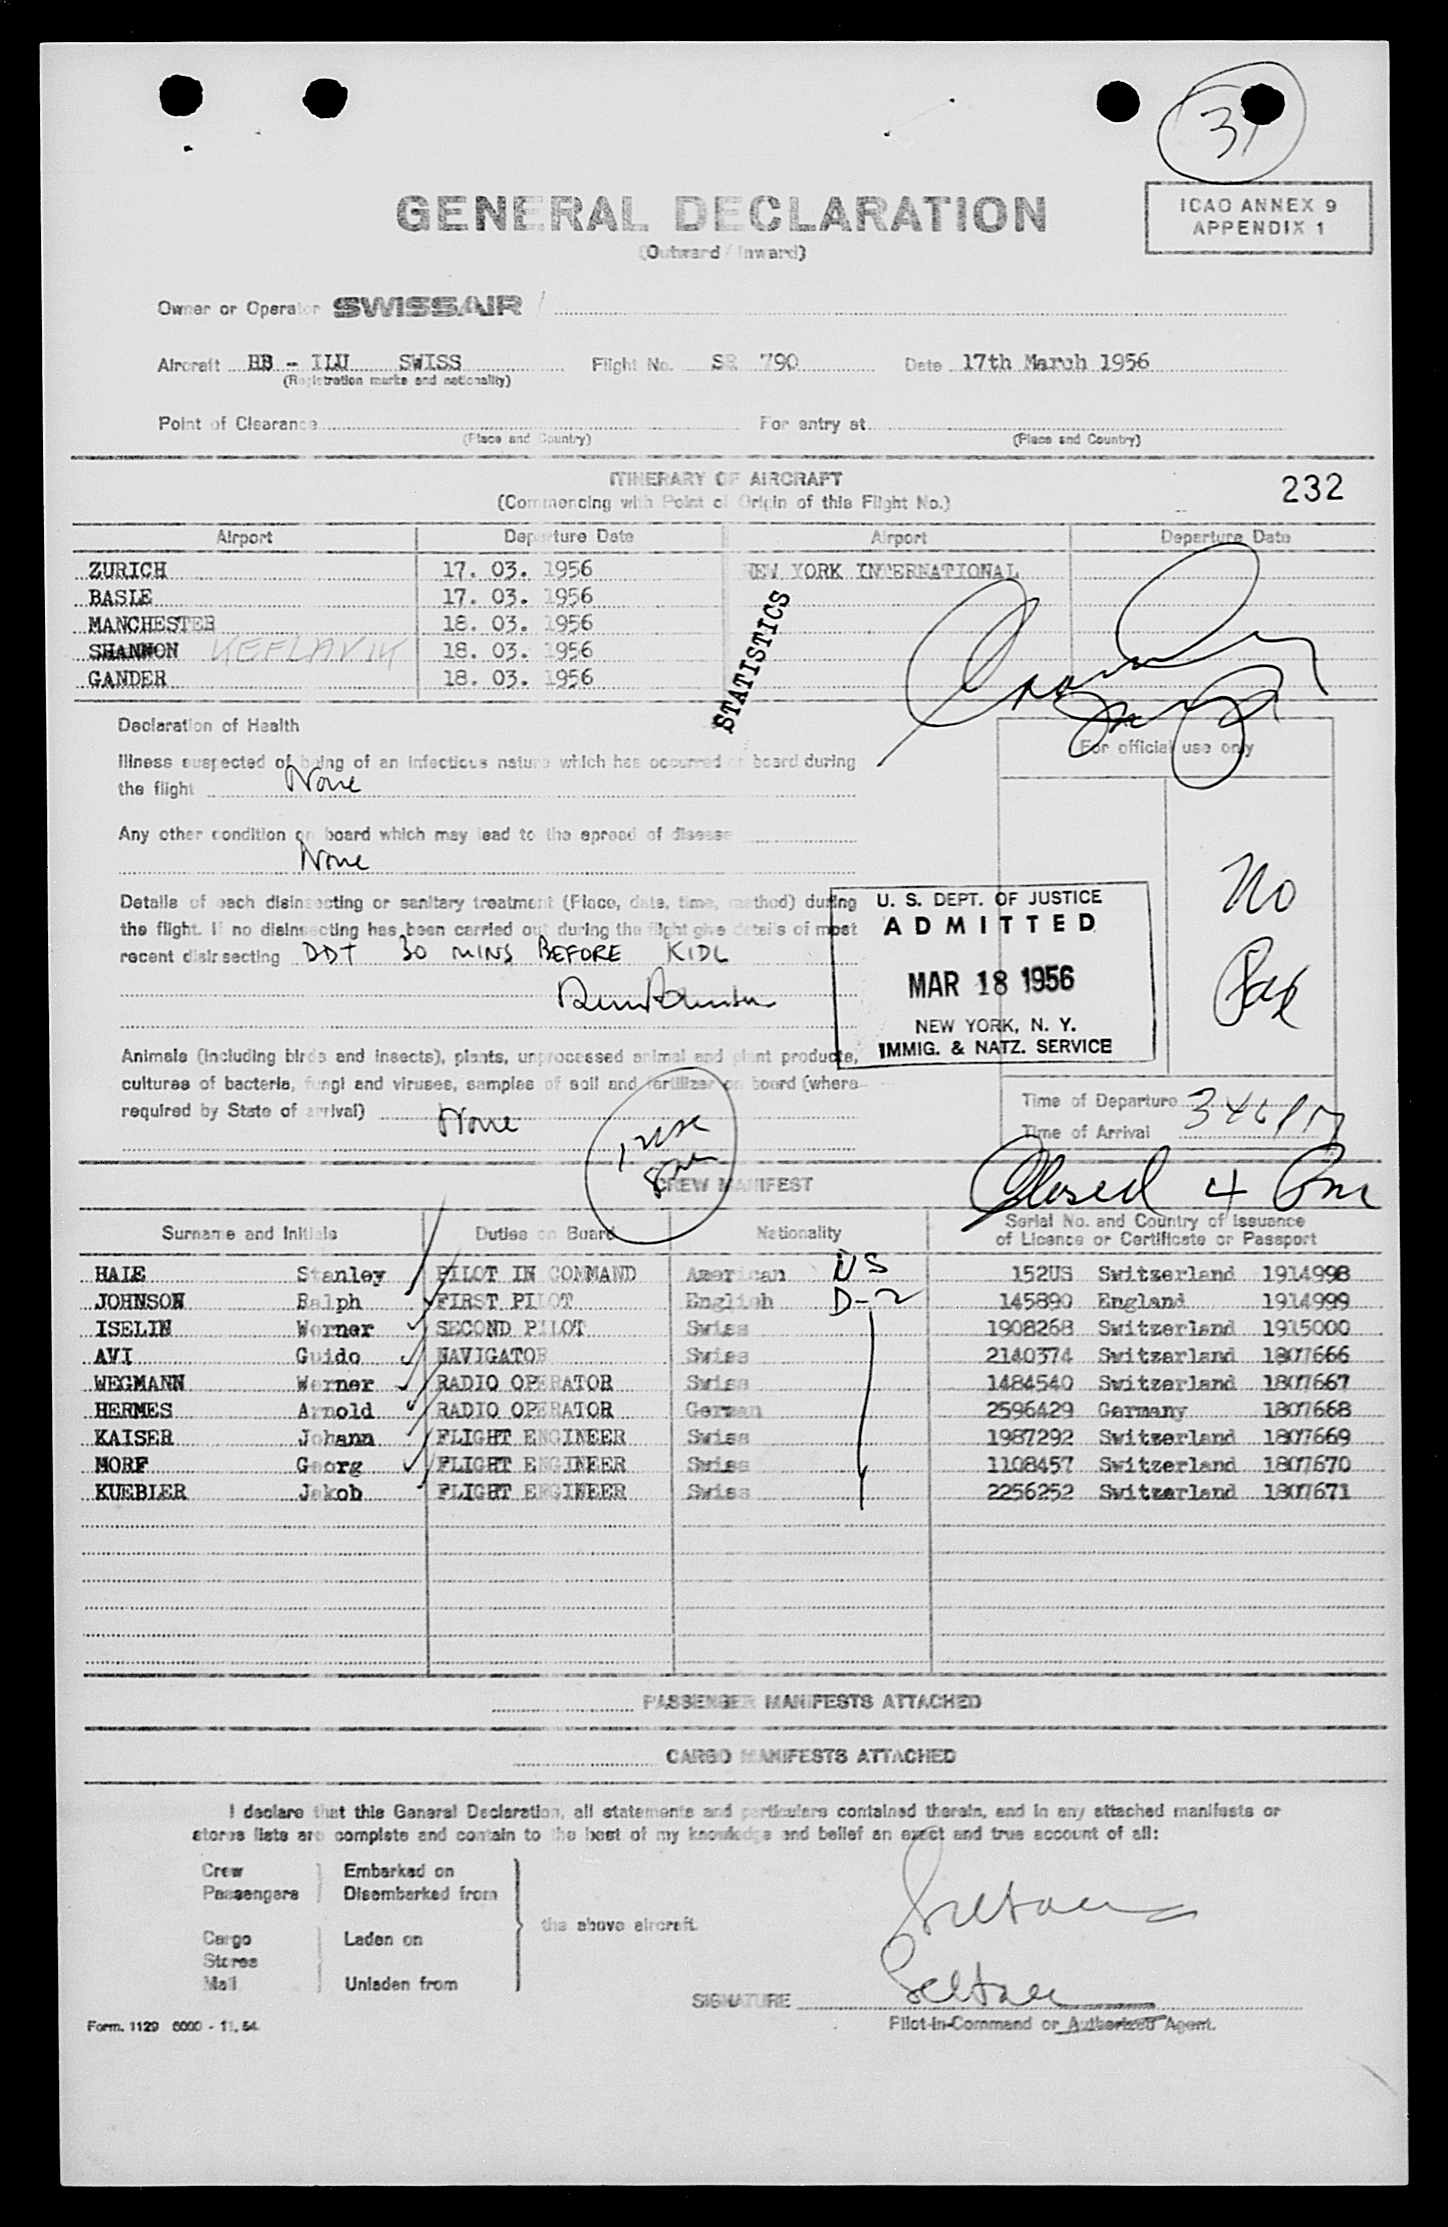 31
GENERAL DECLARATION
(Outward / Inward)
ICAO ANNEX 9
APPENDIX 1
Owner or Operator SWISSAIR /
Aircraft HB - ILU SWISS Flight No. SR 790 Date 17th March 1956
(Registration marks and nationality)
Point of Clearance For entry at
(Place and Country) (Place and Country)
ITINERARY OF AIRCRAFT
(Commencing with Point of Origin of this Flight No.)
232
Airport Departure Date Airport Departure Date
ZURICH 17. 03. 1956 NEW YORK INTERNATIONAL
BASLE 17. 03. 1956
MANCHESTER 18. 03. 1956
SHANNON KEFLAVIK 18. 03. 1956
GANDER 18. 03. 1956
STATISTICS
Declaration of Health
For official use only
Illness suspected of being of an infectious nature which has occurred on board during
the flight None
Any other condition on board which may lead to the spread of disease
None
Details of each disinsecting or sanitary treatment (Place, date, time, method) during
the flight. If no disinsecting has been carried out during the flight give details of most
recent disinsecting DDT 30 MINS BEFORE KIDL
U. S. DEPT. OF JUSTICE
ADMITTED
MAR 18 1956
NEW YORK, N. Y.
IMMIG. & NATZ. SERVICE
No
Pax
Animals (including birds and insects), plants, unprocessed animal and plant products,
cultures of bacteria, fungi and viruses, samples of soil and fertilizer on board (where
required by State of arrival) None
Time of Departure 346 PM
Time of Arrival
Closed 4 Pm
CREW MANIFEST
Surname and Initials Duties on Board Nationality Serial No. and Country of Issuance
of Licence or Certificate or Passport
HALE Stanley PILOT IN COMMAND American US 152US Switzerland 1914998
JOHNSON Ralph FIRST PILOT English D-2 145890 England 1914999
ISELIN Werner SECOND PILOT Swiss 1908268 Switzerland 1915000
AVI Guido NAVIGATOR Swiss 2140374 Switzerland 1807666
WEGMANN Werner RADIO OPERATOR Swiss 1484540 Switzerland 1807667
HERMES Arnold RADIO OPERATOR German 2596429 Germany 1807668
KAISER Johann FLIGHT ENGINEER Swiss 1987292 Switzerland 1807669
MORF Georg FLIGHT ENGINEER Swiss 1108457 Switzerland 1807670
KUEBLER Jakob FLIGHT ENGINEER Swiss 2256252 Switzerland 1807671
PASSENGER MANIFESTS ATTACHED
CARGO MANIFESTS ATTACHED
I declare that this General Declaration, all statements and particulars contained therein, and in any attached manifests or
stores lists are complete and contain to the best of my knowledge and belief an exact and true account of all:
Crew Embarked on
Passengers Disembarked from
the above aircraft.
Cargo Laden on
Stores
Mail Unladen from
SIGNATURE
Pilot-in-Command or Authorized Agent.
Form. 1129 6000 - 11. 54